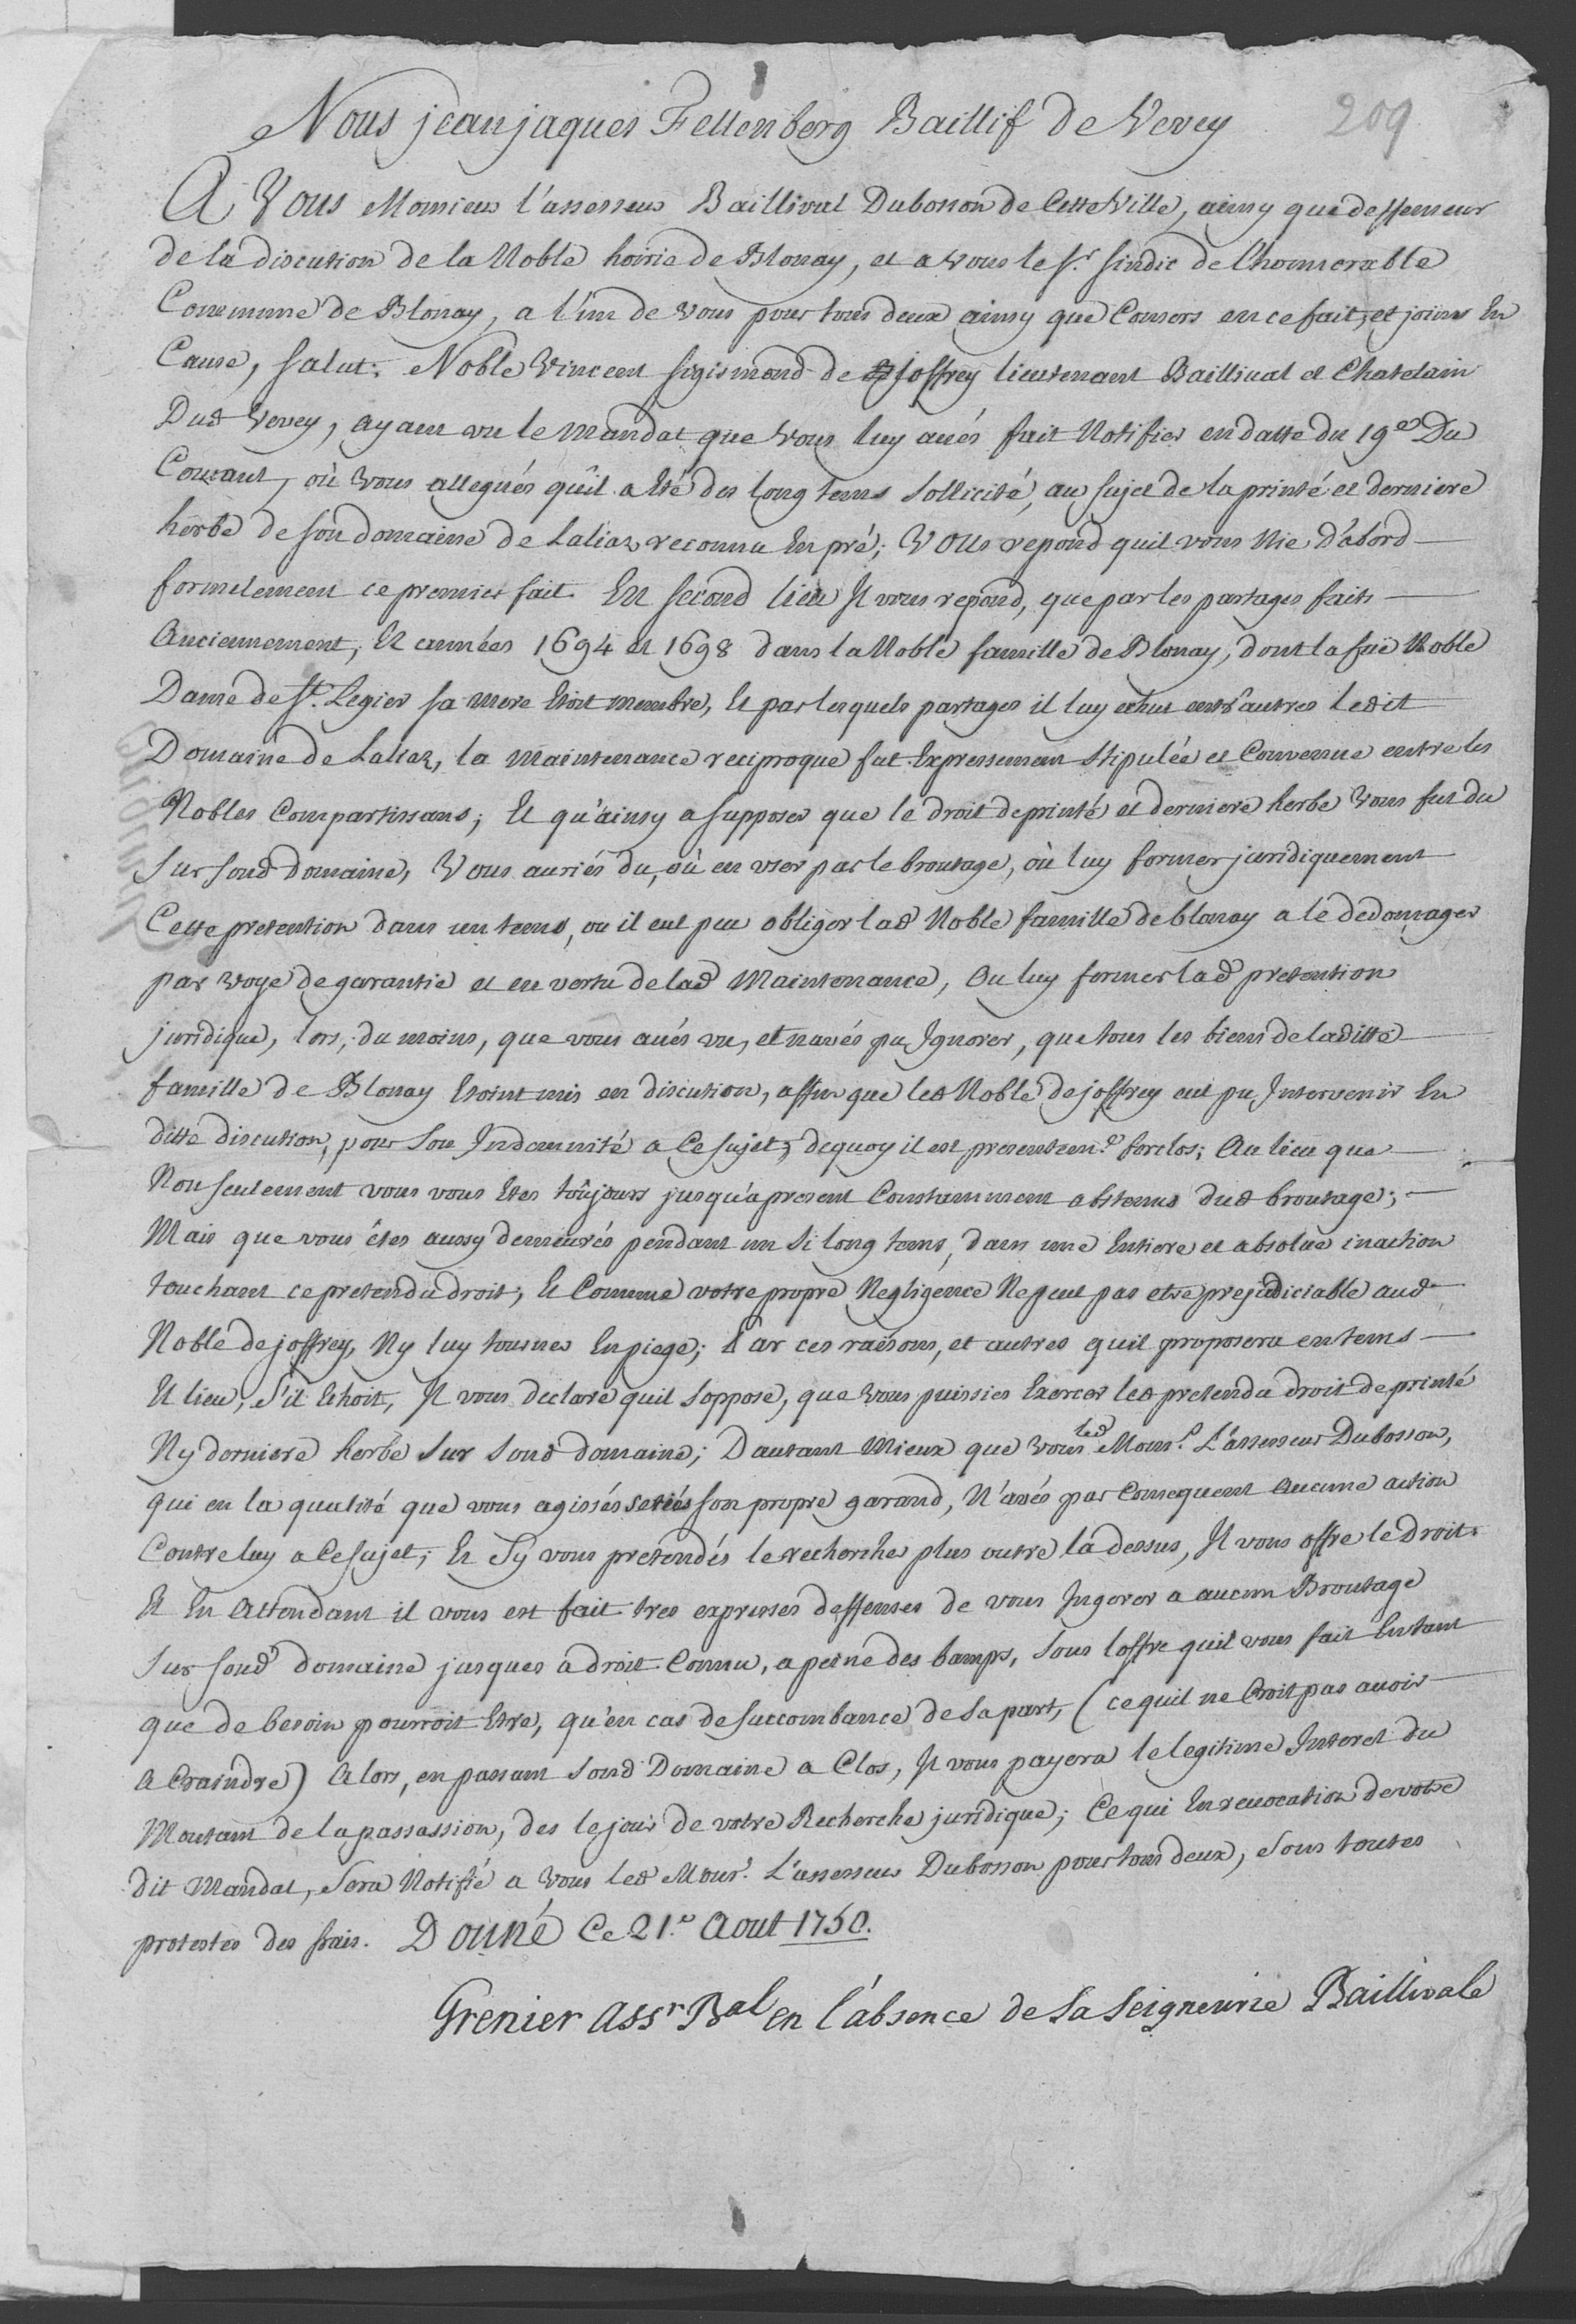 209
Nous jean jaques Fellenberg Baillif de Vevey
A Vous Monsieur l'assesseur Baillival Dubosson de Cette Ville, ainsy que deffenseur
de la discution de la Noble hoirie de Blonay, et a vous le Sr. sindic de l'honnorable
Commune de Blonay, a l'un de vous pour tous deux ainsy que Consors en ce fait, et joints En
Cause, salut. Noble Vincent sigismond de joffrey lieutenant Baillival et Chatelain
Dud Vevey, ayant vu le mandat que vous luy avés fait Notifier en datte du 19e Du
Courant, où vous allegués qu'il a Eté des long tems sollicité, au sujet de la printé et derniere
herbe de son domaine de Laliaz reconnu En pré; Vous repond quil vous Nie D'abord
formelement ce premier fait. En second lieu Il vous repond, que par les partages faits
Anciennement, Et années 1694 et 1698 dans la Noble famille de Blonay, dont la füe Noble
Dame de St. Legier sa mere Etoit membre, Et par lesquels partages il luy echut entr'autres ledit
Domaine de Laliaz, la maintenance reciproque fut Expressement stipulée et Convenue entre les
Nobles Compartissans; Et qu'ainsy a supposer que le droit de printé et derniere herbe vous fut du
sur sond domaine, Vous auriés du, où en user par le broutage, où luy former juridiquement
Cette pretention dans un tems, ou il eut peu obliger lad Noble famille de blonay a le dedomager
par voye de garantie et en vertu de lad Maintenance, Ou luy former lad pretention
juridique, lors, du moins, que vous avés vu, et navés pu Ignorer, que tous les biens de laditte
famille de Blonay Etoint mis en discution, affin que led Noble de joffrey eut pu Intervenir En
ditte discution, pour son Indemnité a Ce sujet, dequoy il est presentemt. forclos; Au lieu que
Non seulement vous vous Etes toûjours jusqu'a present Constamment abstenus dud broutage;
Mais que vous êtes aussy demeurés pendant un si long tems, dans une Entiere et absolue inaction
touchant ce pretendu droit; Et Comme votre propre Negligence Ne peut pas etre prejudiciable aud
Noble de joffrey, Ny luy tourner En piege; Par ces raisons, et autres quil proposera en tems
Et lieu, S'il Echoit, Il vous declare quil soppose, que vous puissies Exercer led pretendu droit de printé
Ny derniere herbe sur sond domaine; Dautant Mieux que vous led Monsr. L'assesseur Dubosson,
qui en la qualité que vous agissés seriés son propre garand, N'avés par Consequent Aucune action
Contre luy a Ce sujet; Et Sy vous pretendés le rechercher plus outre la dessus, Il vous offre le Droit.
Et En Attendant il vous est fait tres expresses deffenses de vous Ingerer a aucun Broutage
sur sond domaine jusques a droit Connu, a peine des bamps, sous l'offre quil vous fait Entant
que de besoin pourroit Etre, qu'en cas de succombance de sa part, (ce quil ne Croit pas avoir
a Craindre) Alors, en passant sond Domaine a Clos, Il vous payera le legitime Interet du
Montant de la passassion, des le jour de votre Recherche juridique; Ce qui En revocation de votre
dit Mandat, sera Notifié a vous led Monsr. L'assesseur Dubosson pour tous deux, sous toutes
protestes des frais. Donné Ce 21e Aout 1750.
Grenier Assr Bal en l'absence de Sa Seigneurie Baillivale